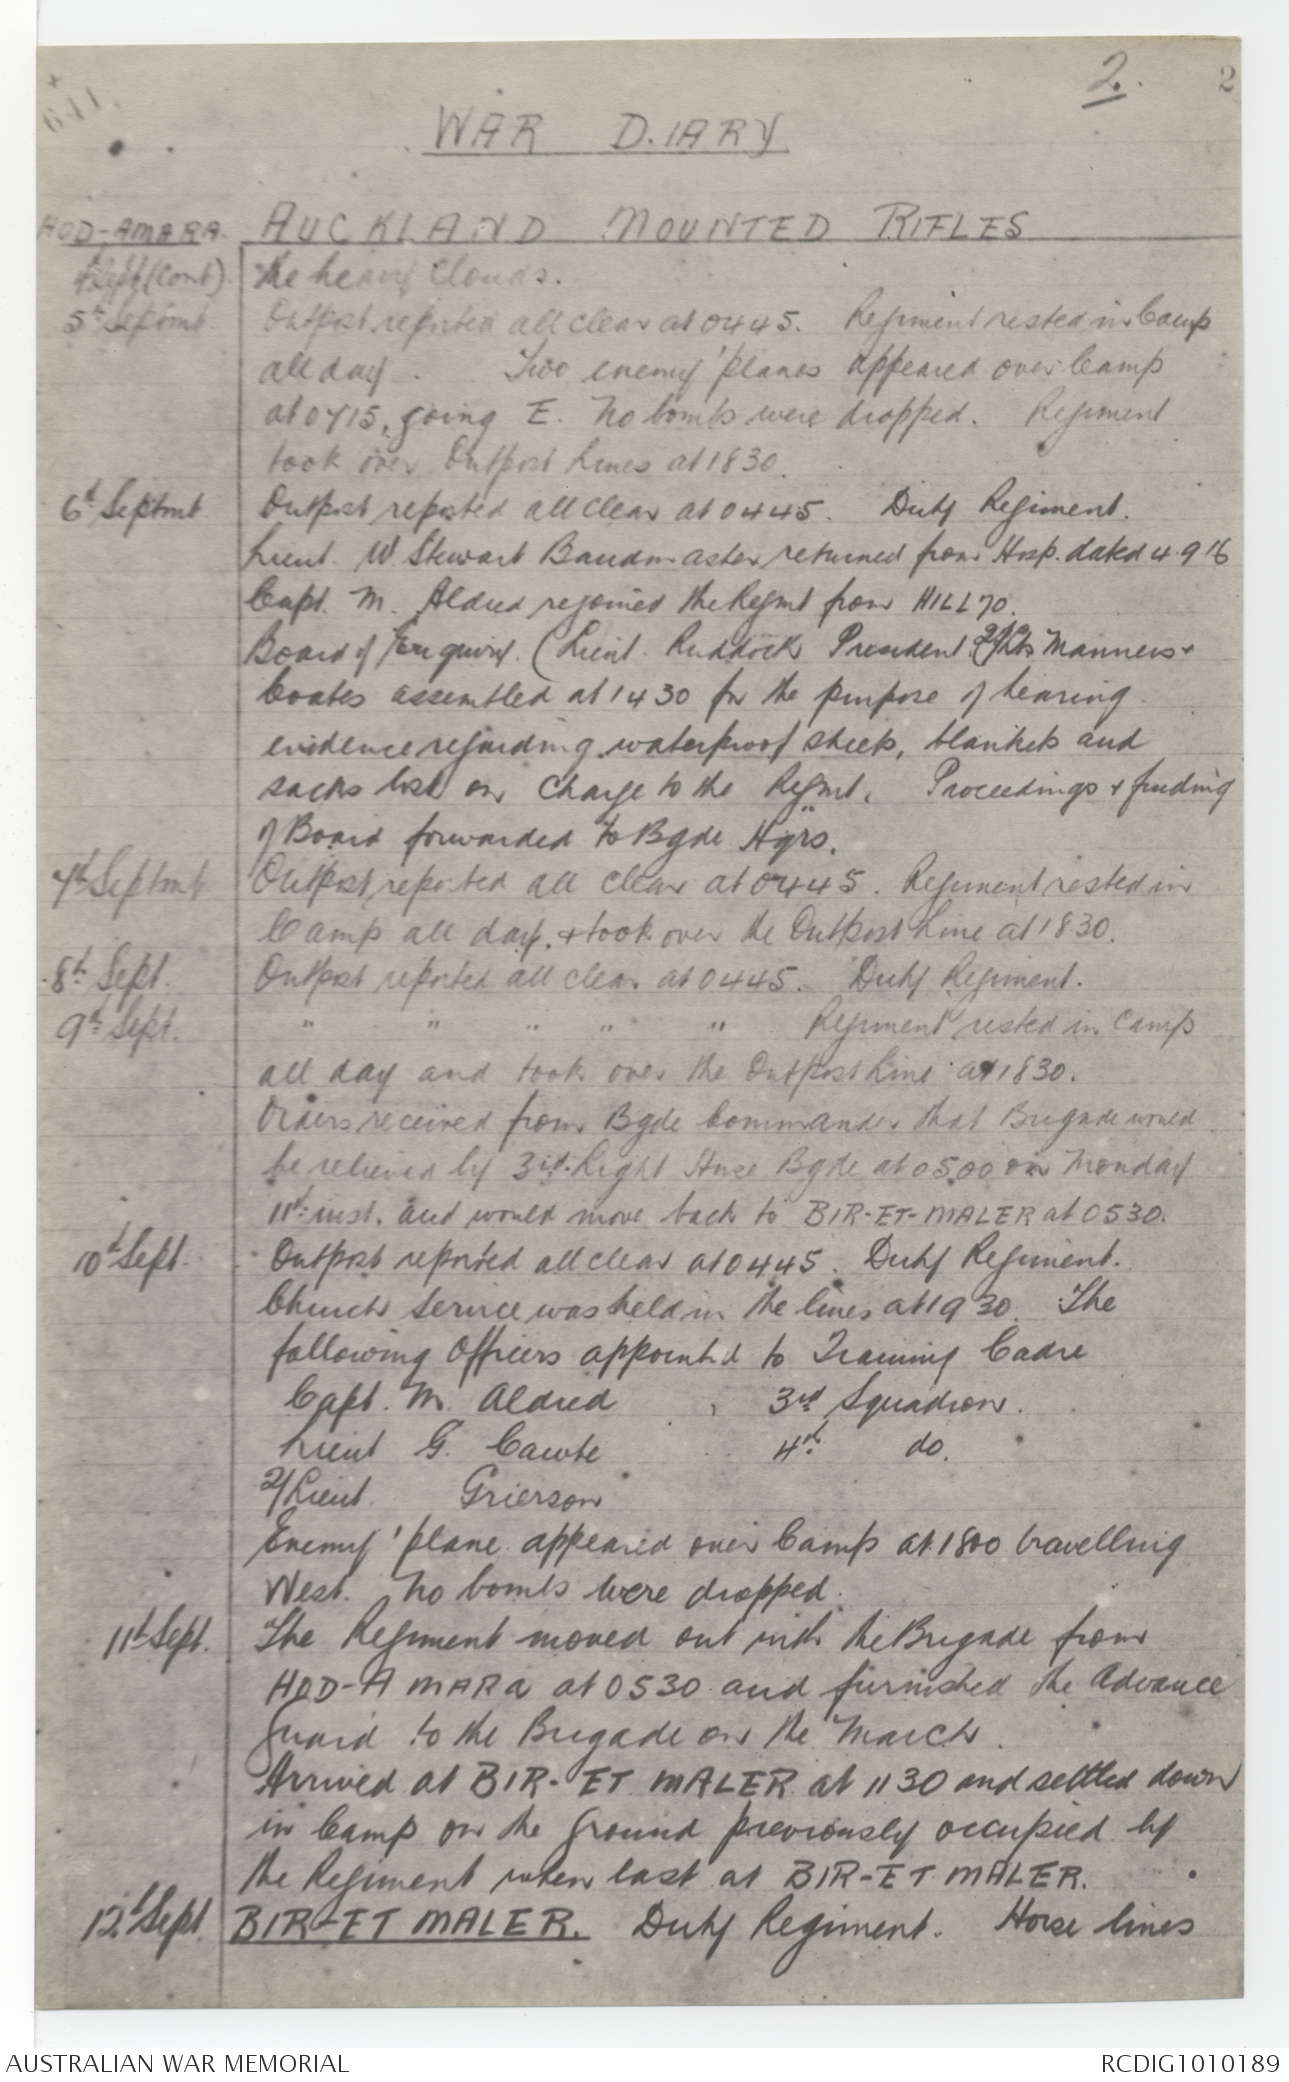 2.
2
WAR DIARY
HOD-AMARA. AUCKLAND MOUNTED RIFLES
4th Sept (Cont). the heavy clouds.
5th Septmb. Outpost reported all clear at 0445. Regiment rested in Camp
all day. Two enemy 'planes appeared over Camp
at 0715, going E. No bombs were dropped. Regiment
took over Outpost Lines at 1830.
6th Septmb Outpost reported all clear at 0445. Duty Regiment.
Lieut. W Stewart Bandmaster returned from Hosp. dated 4.9.16
Capt. M. Aldred rejoined the Regmt from HILL 70.
Board of Enquiry. (Lieut. Ruddock President 2/Lts Manners +
Coates assembled at 1430 for the purpose of hearing
evidence regarding waterproof sheets, blankets and
sacks lost on charge to the Regmt. Proceedings & finding
of Board forwarded to Bgde Hqrs.
7th Septmb Outpost reported all clear at 0445. Regiment rested in
Camp all day, & took over the Outpost Line at 1830.
8th Sept. Outpost reported all clear at 0445. Duty Regiment.
9th Sept. " " " " " Regiment rested in Camp
all day and took over the Outpost Line at 1830.
Orders received from Bgde Commander that Brigade would
be relieved by 3rd Light Horse Bgde at 0500 on Monday
11th inst. and would move back to BIR-ET-MALER at 0530.
10th Sept. Outpost reported all clear at 0445. Duty Regiment.
Church Service was held in the lines at 1930. The
following Officers appointed to Training Cadre
Capt. M. Aldred 3rd Squadron.
Lieut G. Cawte 4th do.
2/Lieut. Grierson
Enemy 'plane appeared over Camp at 1800 travelling
West. No bombs were dropped.
11th Sept. The Regiment moved out with the Brigade from
HOD-AMARA at 0530 and furnished the Advance
Guard to the Brigade on the March.
Arrived at BIR-ET MALER at 1130 and settled down
in Camp on the ground previously occupied by
the Regiment when last at BIR-ET MALER.
12th Sept. BIR-ET MALER. Duty Regiment. Horse lines
AUSTRALIAN WAR MEMORIAL
RCDIG1010189